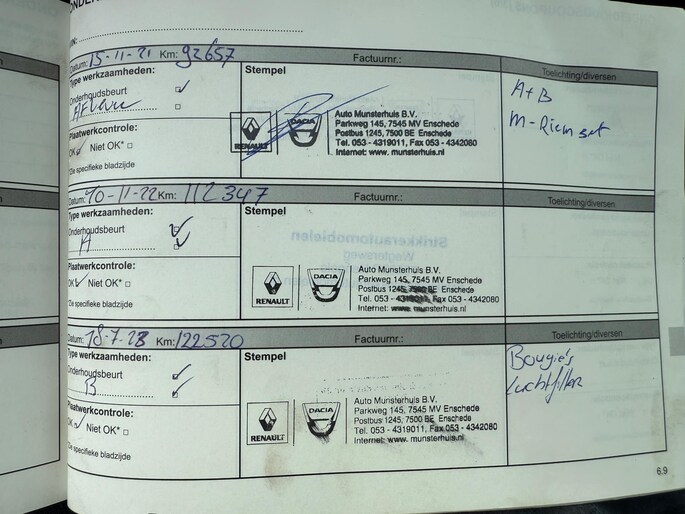 Datum: 15-11-21 Km: 92657 Factuurnr.: Toelichting/diversen
Type werkzaamheden:
Onderhoudsbeurt
Plaatwerkcontrole:
OK Niet OK*
*Zie specifieke bladzijde
Stempel
RENAULT
DACIA
Auto Munsterhuis B.V.
Parkweg 145, 7545 MV Enschede
Postbus 1245, 7500 BE Enschede
Tel. 053 - 4319011, Fax 053 - 4342080
Internet: www.munsterhuis.nl
A+B
M-Riem set
Datum: 10-11-22 Km: 112347 Factuurnr.: Toelichting/diversen
Type werkzaamheden:
Onderhoudsbeurt
A
Plaatwerkcontrole:
OK Niet OK*
*Zie specifieke bladzijde
Stempel
RENAULT
DACIA
Auto Munsterhuis B.V.
Parkweg 145, 7545 MV Enschede
Postbus 1245, 7500 BE Enschede
Tel. 053 - 4319011, Fax 053 - 4342080
Internet: www.munsterhuis.nl
Datum: 18-7-23 Km: 122520 Factuurnr.: Toelichting/diversen
Type werkzaamheden:
Onderhoudsbeurt
B
Plaatwerkcontrole:
OK Niet OK*
*Zie specifieke bladzijde
Stempel
RENAULT
DACIA
Auto Munsterhuis B.V.
Parkweg 145, 7545 MV Enschede
Postbus 1245, 7500 BE Enschede
Tel. 053 - 4319011, Fax 053 - 4342080
Internet: www.munsterhuis.nl
Bougie's
Luchtfilter
6.9